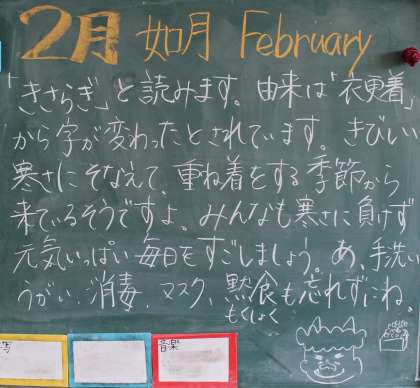 2月 如月 February
「きさらぎ」と読みます。由来は「衣更着」
から字が変わったとされています。きびしい
寒さにそなえて、重ね着をする季節から
来ているそうですよ。みんなも寒さに負けず
元気いっぱい毎日をすごしましょう。あ、手洗い
うがい、消毒、マスク、黙食も忘れずにね。
もくしょく
写
音楽